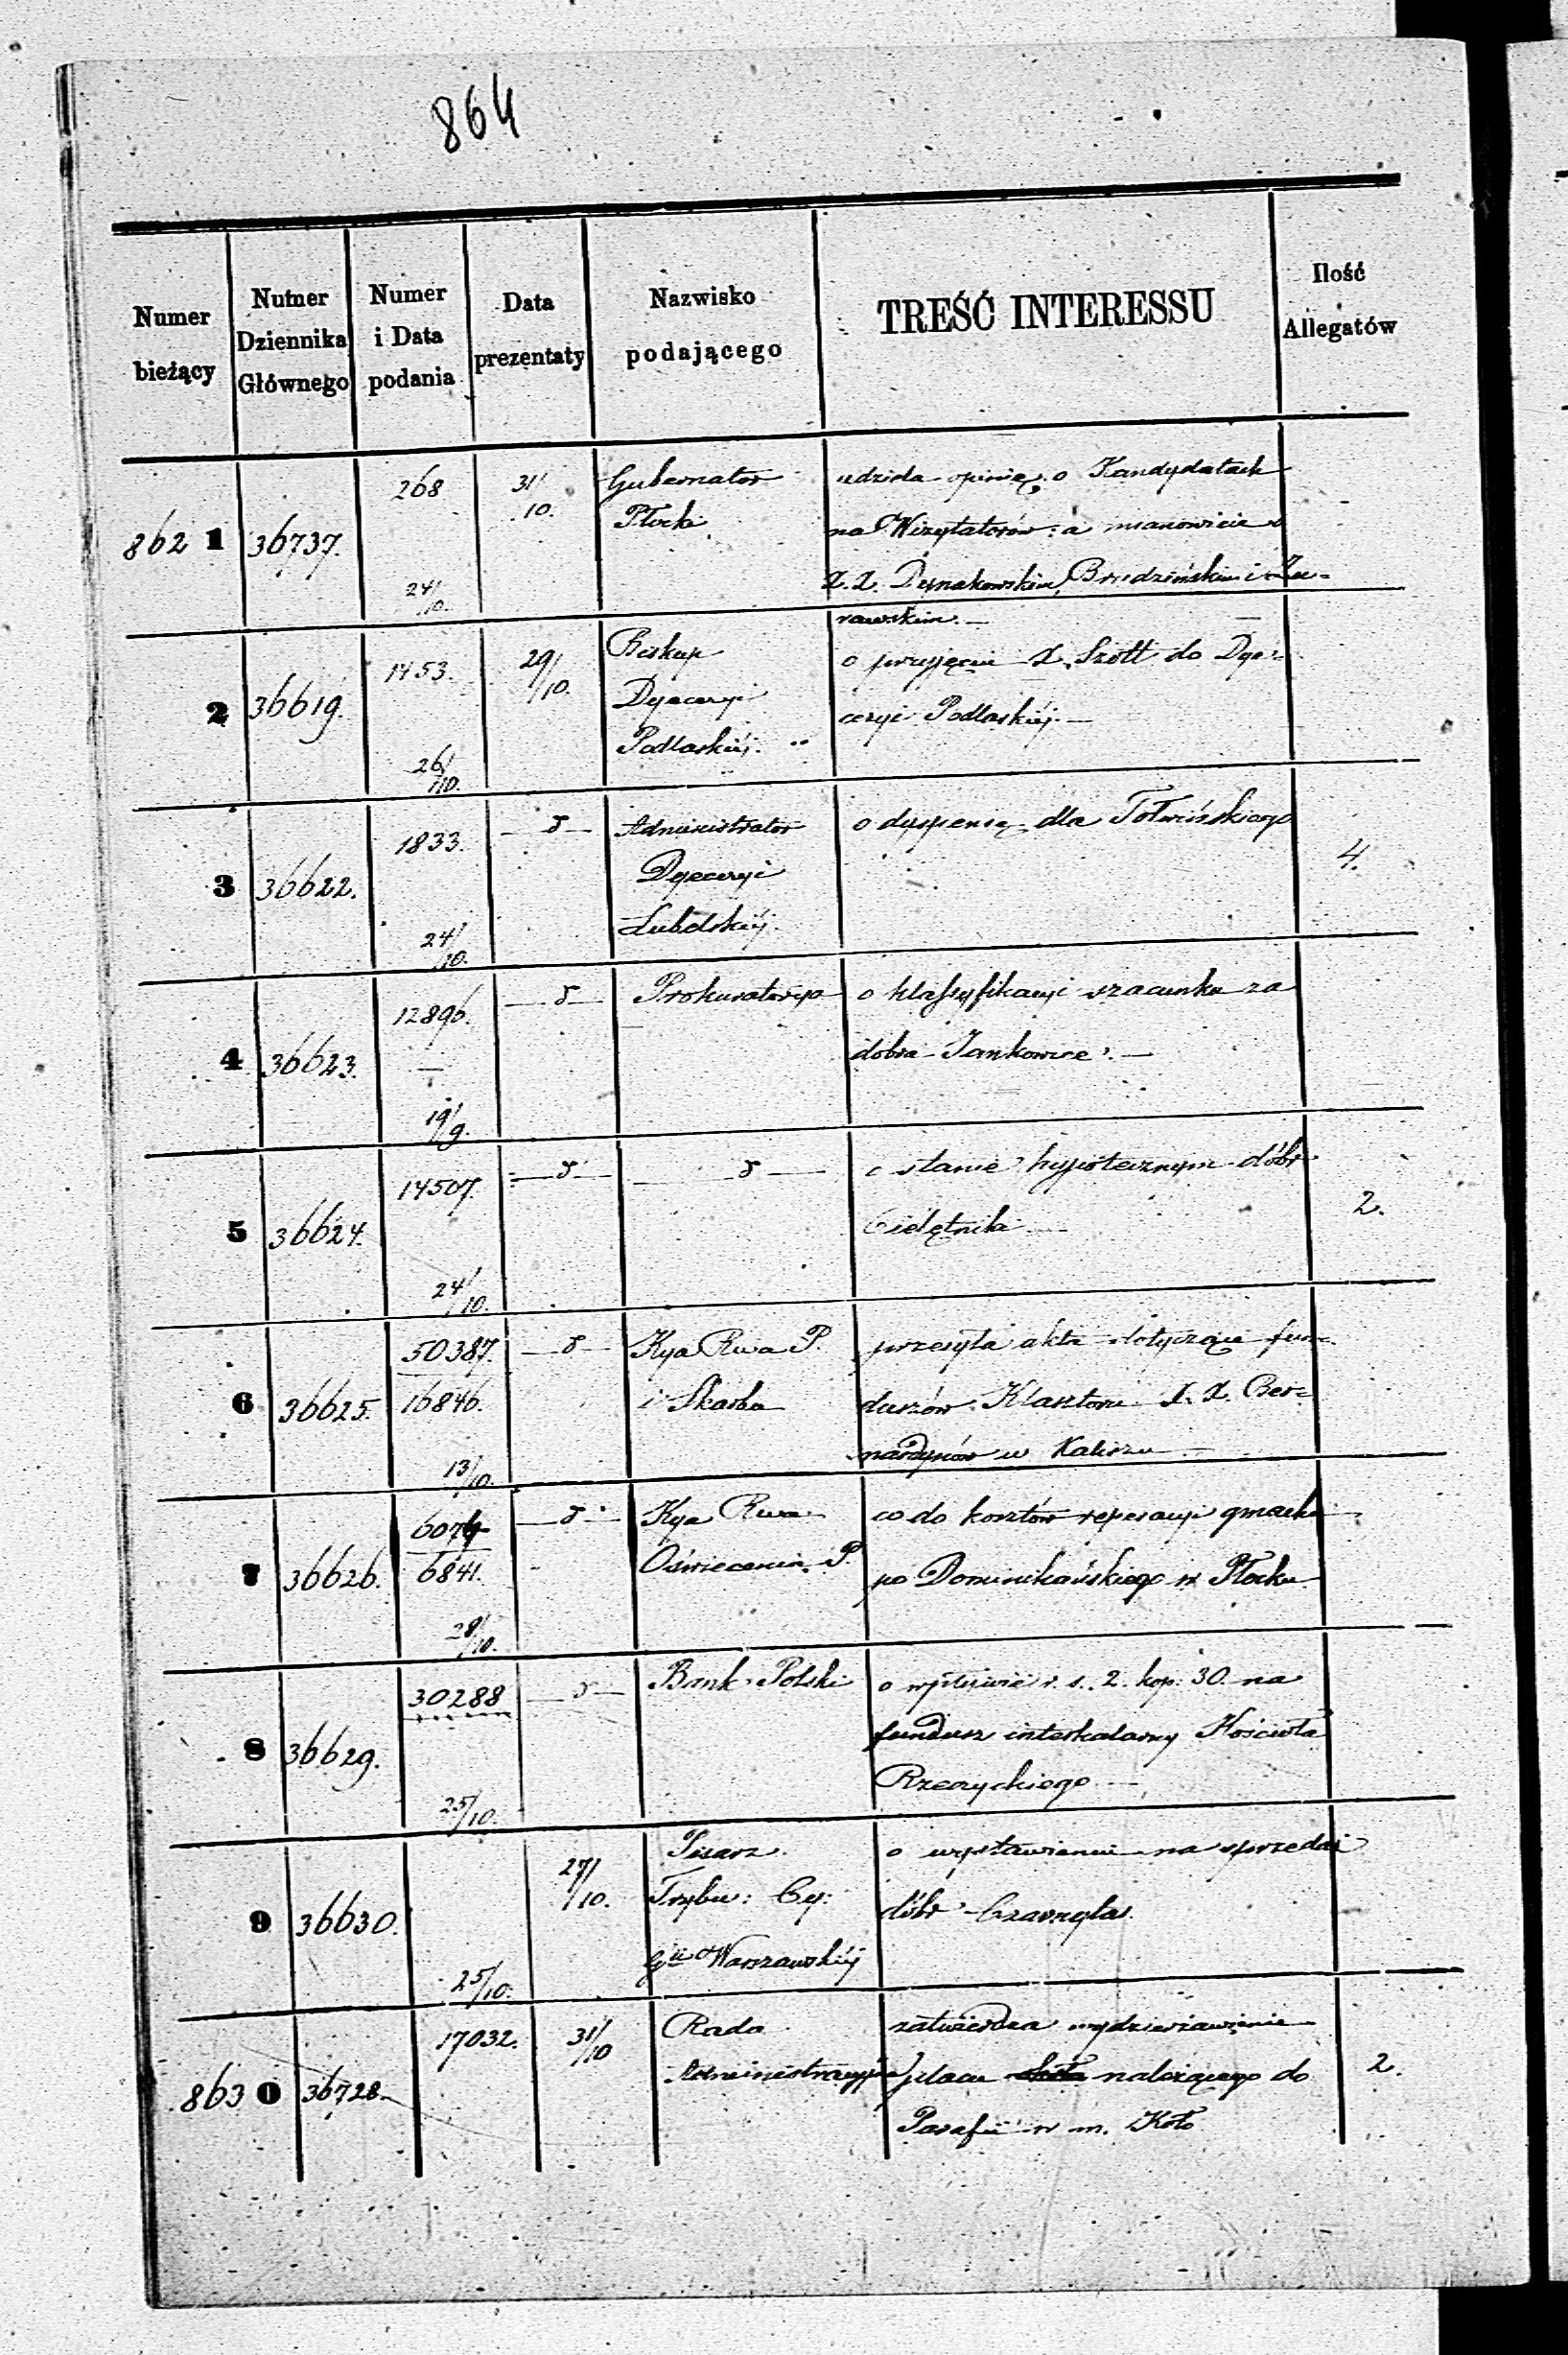 864
Numer bieżący
Numer Dziennika Głównego
Numer i Data podania
Data prezentaty
Nazwisko podającego
TREŚĆ INTERESSU
Ilość Allegatów
862 1 36737. 268 24/10. 31/10.
Gubernator
Płocki
udziela opinię o Kandydatach
na Wizytatorów: a mianowicie o
X. X.
rawskim. —
2 36619. 1453. 26/10. 29/10.
Biskup
Dyecezyi
Podlaskiéj.
o przyjęciu X. Szott do Dye=
cezyi Podlaskiéj. —
3 36622. 1833. 24/10. — d —
Administrator
Dyecezyi
Lubelskiéj.
o dyspensę dla Tołwińskiego
4.
4 36623. 12896. 19/9. — d —
Prokuratorya
o klassyfikacyi szacunku za
dobra Jankowice. —
5 36624. 14507. 24/10. — d — — d —
o stanie hypotecznym dóbr
Cielętnika
2.
6 36625. 50387. 16846. 13/10. — d —
Kya Rwa P.
i Skarbu
przesyła akta dotyczące fun=
duszów Klasztoru X. X. Ber=
nardynów w Kaliszu —
7 36626. 6841. 28/10. — d —
Kya Rwa
Oświecenia P.
co do kosztów reperacyi gmachu
po Dominikańskiego w Płocku
8 36629. 30288 25/10. — d —
Bank Polski
o wpływie r. s. 2. kop. 30. na
fundusz interkalarny Kościoła
Rzeczyckiego —
9 36630. 25/10. 27/10.
Pisarz
Trybu: Cy:
Gii Warszawskiéj
o wystawieniu na sprzedaż
dóbr
863 0 36728. 17032. 31/10
Rada
Administracyjna
zatwierdza wydzierżawienie
placu należącego do
Parafii w m. Koło
2.